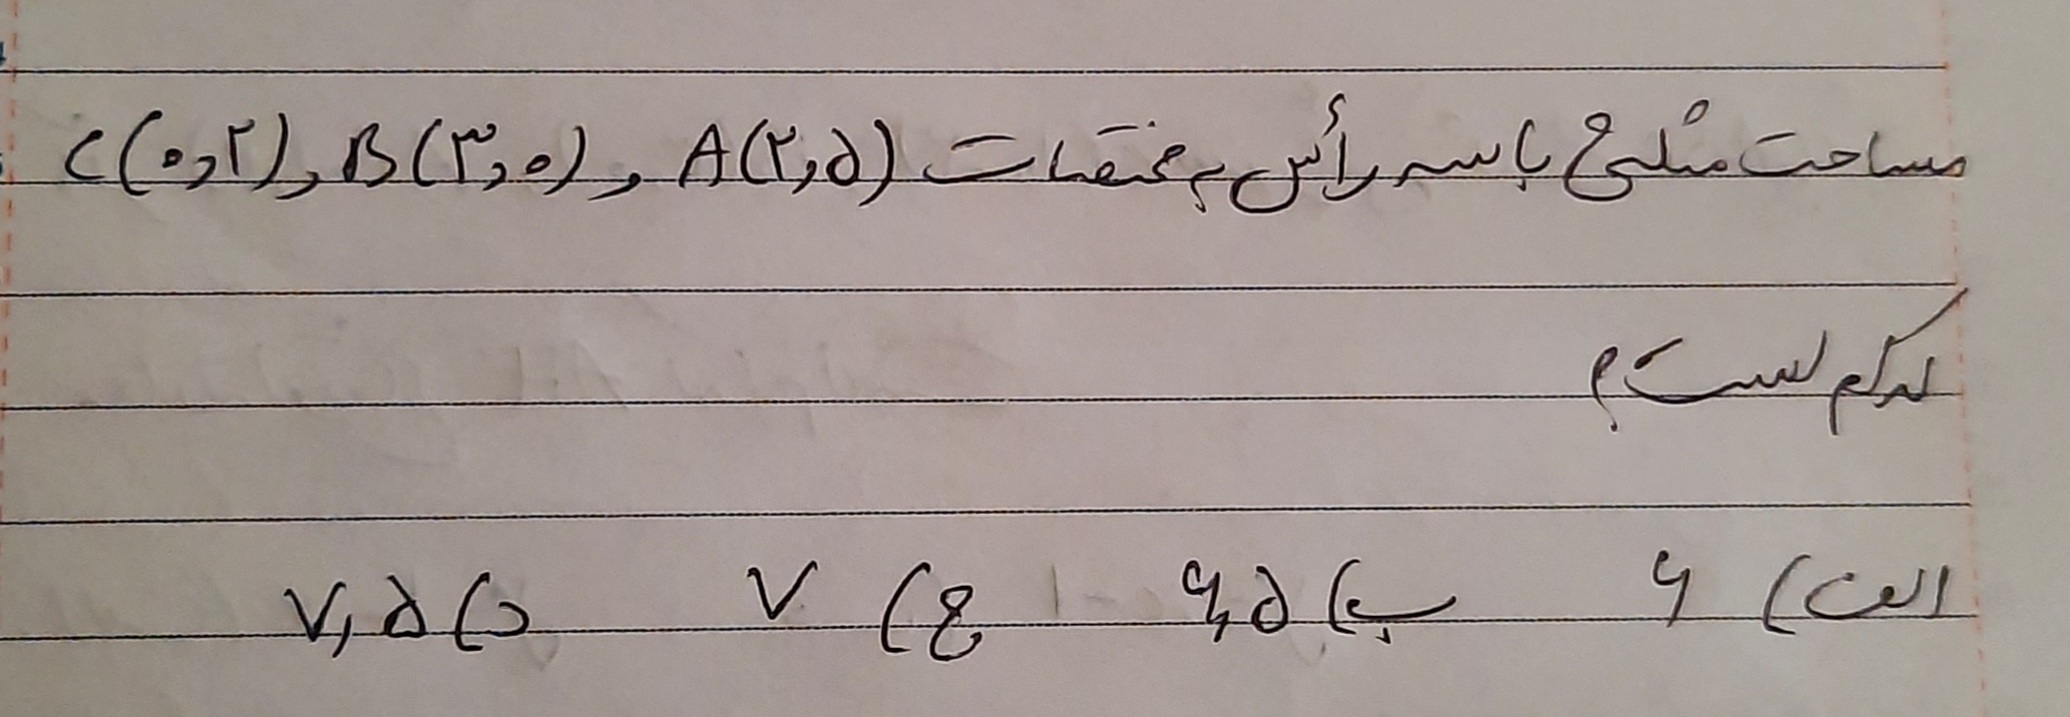 مساحت مثلثی با سه رأس به مختصات A(۲,۵) , B(۳,۰) , C(۰,۲)
کدام است؟
الف) ۶ ب) ۶,۵ ج) ۷ د) ۷,۵